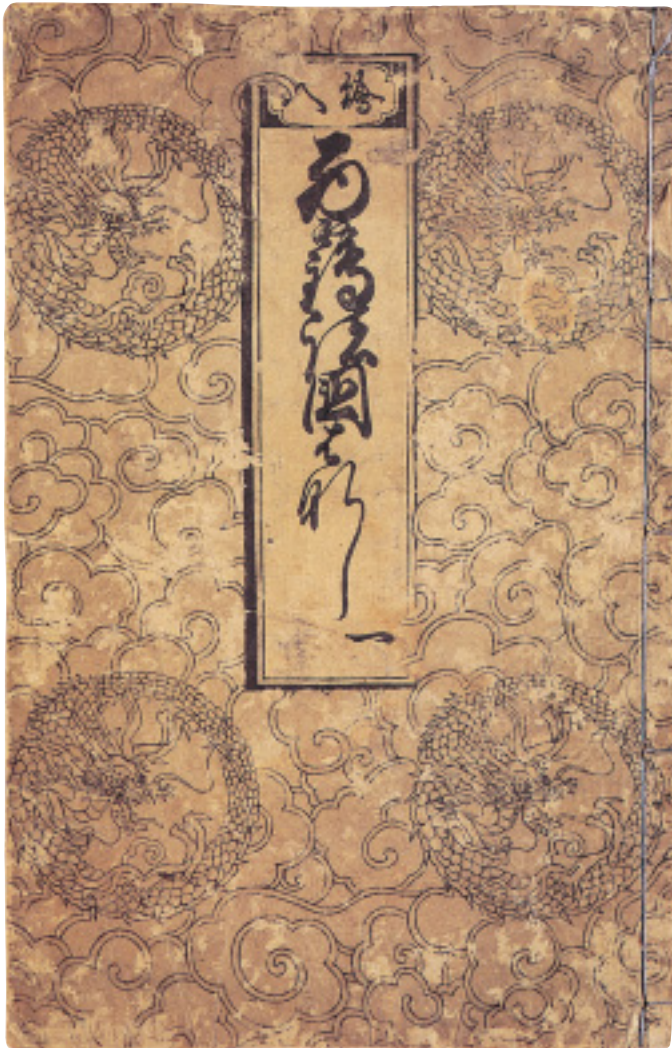 繪入
西鶴諸國はなし 一